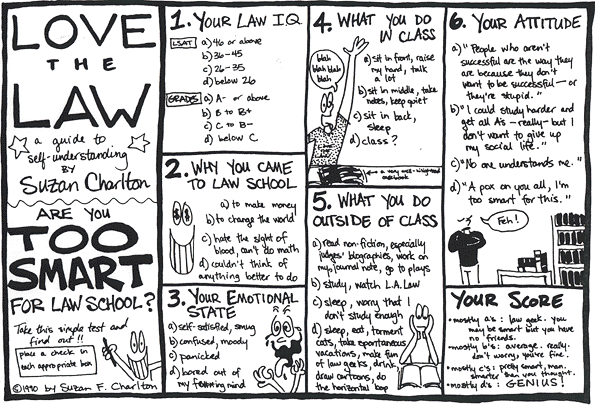 LOVE
THE
LAW
a guide to
self-understanding
BY
Suzan Charlton
ARE YOU
TOO
SMART
FOR LAW SCHOOL?
Take this simple test and
find out!!
place a check in
each appropriate box
©1990 by Suzan F. Charlton
1. YOUR LAW IQ
LSAT
a) 46 or above
b) 36-45
c) 26-35
d) below 26
GRADES
a) A- or above
b) B to B+
c) C to B-
d) below C
2. WHY YOU CAME
TO LAW SCHOOL
a) to make money
b) to change the world
c) hate the sight of
blood, can't do math
d) couldn't think of
anything better to do
3. YOUR EMOTIONAL
STATE
a) self-satisfied, smug
b) confused, moody
c) panicked
d) bored out of
my mind
4. WHAT YOU DO
IN CLASS
blah
blah blah
blah
a) sit in front, raise
my hand, talk
a lot
b) sit in middle, take
notes, keep quiet
c) sit in back,
sleep
d) class?
a very well-
casebook
5. WHAT YOU DO
OUTSIDE OF CLASS
a) read non-fiction, especially
judges' biographies, work on
my journal note, go to plays
b) study, watch L.A. Law
c) sleep, worry that I
don't study enough
d) sleep, eat, torment
cats, take spontaneous
vacations, make fun
of law geeks, drink,
draw cartoons, do
the horizontal bop
6. YOUR ATTITUDE
a) "People who aren't
successful are the way they
are because they don't
want to be successful — or
they're stupid."
b) "I could study harder and
get all A's — really — but I
don't want to give up
my social life."
c) "No one understands me."
d) "A pox on you all, I'm
too smart for this."
Feh!
YOUR SCORE
• mostly a's: law geek. you
may be smart but you have
no friends.
• mostly b's: average. really.
don't worry, you're fine.
• mostly c's: pretty smart, man.
smarter than you thought.
• mostly d's: GENIUS!